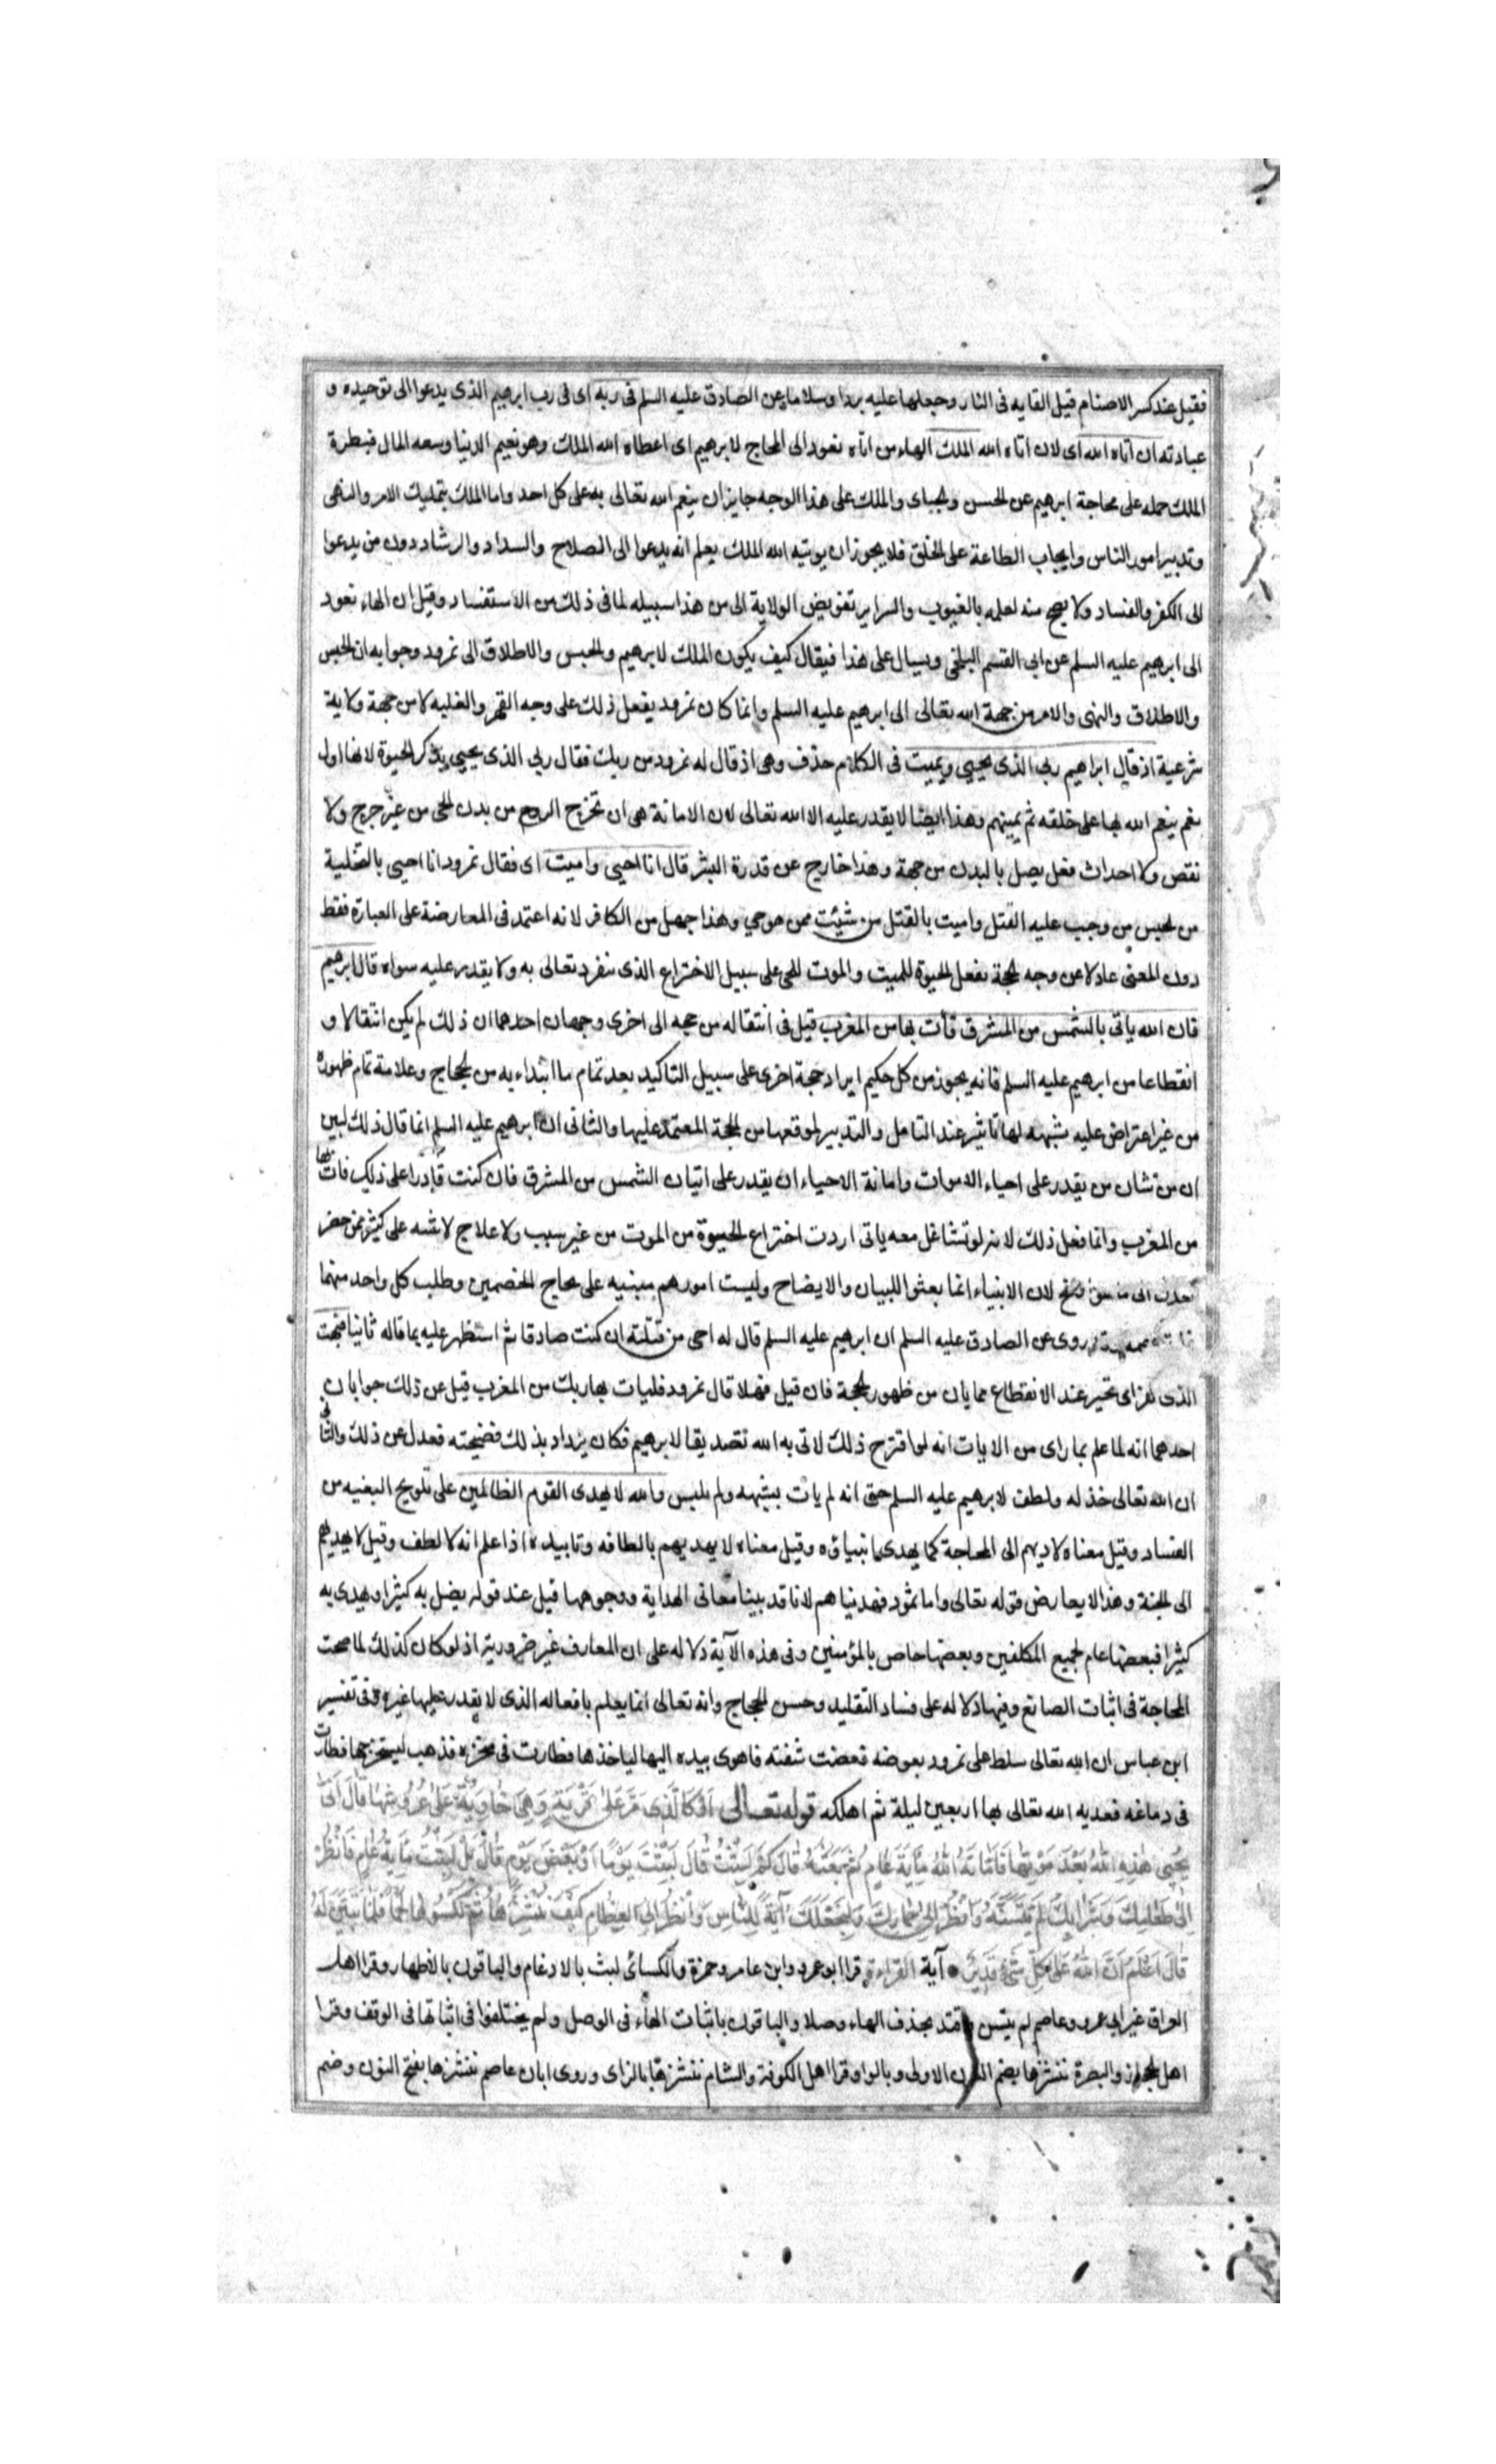 فقيل عند كسر الاصنام قبل القايه فى النار وجعلها عليه بردا وسلاما عن الصادق عليه السلم فى ربه اى فى رب ابرهيم الذى يدعوا الى توحيده و
عبادته ان اتاه الله اى لان اتاه الله الملك الهاء من اتاه تعود الى المحاج لابرهيم اى اعطاه الله الملك وهو نعيم الدنيا وسعه المال فبطرة
الملك حمله على محاجة ابرهيم عن الحسن والجباى والملك على هذا الوجه جايز ان ينعم الله تعالى به على كل احد واما الملك بتمليك الامر والنهى
وتدبير امور الناس وايجاب الطاعة على الخلق فلا يجوز ان يوتيه الله الملك يعلم انه يدعوا الى الصلاح والسداد والرشاد دون من يدعوا
الى الكفر والفساد ولا يصح منه لعلمه بالغيوب والسراير تفويض الولاية الى من هذا سبيله لما فى ذلك من الاستفساد وقيل ان الهاء تعود
الى ابرهيم عليه السلم عن ابى القسم البلخى ويسال على هذا فيقال كيف يكون الملك لابرهيم والحبس والاطلاق الى نمرود وجوابه ان الحبس
والاطلاق والنهى والامر من جهة الله تعالى الى ابرهيم عليه السلم وانما كان نمرود يفعل ذلك على وجه القهر والغلبه لا من جهة ولاية
شرعية اذ قال ابراهيم ربى الذى يحيى ويميت فى الكلام حذف وهى اذ قال له نمرود من ربك فقال ربى الذى يحيى بذكر الحيوة لانها اول
نعم ينعم الله بها على خلقه ثم يميتهم وهذا ايضا لا يقدر عليه الا الله تعالى لان الاماتة هى ان تخرج الروح من بدن الحى من غير جرح ولا
نقص ولا احداث فعل يصل بالبدن من جهة وهذا خارج عن قدرة البشر قال انا احيى واميت اى فقال نمرود انا احيى بالتخلية
من الحبس من وجب عليه القتل واميت بالقتل من شيئت ممن هو حي وهذا جهل من الكافر لانه اعتمد فى المعارضة على العبارة فقط
دون المعنى عادلا عن وجه الحجة بفعل الحيوة للميت والموت للحى على سبيل الاختراع الذى تفرد تعالى به ولا يقدر عليه سواه قال ابرهيم
فان الله ياتى بالشمس من المشرق فأت بها من المغرب قيل فى انتقاله من حجه الى اخرى وجهان احدهما ان ذلك لم يكن انتقالا و
انقطاعا من ابرهيم عليه السلم فانه يجوز من كل حكيم ايراد حجة اخرى على سبيل التاكيد بعد تمام ما ابتداء به من الحجاج وعلامة تمام ظهوره
من غير اعتراض عليه بشبهه لها تاثير عند التامل والتدبير لموقعها من الحجة المعتمدة عليها والثانى ان ابرهيم عليه السلم انما قال ذلك ليبين
ان من شان من يقدر على احياء الاموات واماتة الاحياء ان يقدر على اتيان الشمس من المشرق فان كنت قادرا على ذلك فات بها
من المغرب وانما فعل ذلك لانه لو تشاغل معه باتى اردت اختراع الحيوة من الموت من غير سبب ولا علاج لاشتبه على كثير ممن حضر
فعدل الى ما هو اوضح لان الانبياء انما بعثوا للبيان والايضاح وليست امورهم مبنيه على محاج الخصمين وطلب كل واحد منهما
روى عن الصادق عليه السلم ان ابرهيم عليه السلم قال له احى من قتلته ان كنت صادقا ثم استظهر عليه بما قاله ثانيا فبهت
الذى كفر اى تحير عند الانقطاع مما بان من ظهور الحجة فان قيل فهلا قال نمرود فليات بها ربك من المغرب قيل عن ذلك جوابان
احدهما انه لما علم بما راى من الايات انه لو اقترح ذلك لاتى به الله تصديقا لابرهيم فكان يزداد بذلك فضيحته فعدل عن ذلك والثانى
ان الله تعالى خذله ولطف لابرهيم عليه السلم حتى انه لم يات بشبهه ولم يلبس والله لا يهدى القوم الظالمين على تلويح البغيه من
الفساد وقيل معناه لا يهديهم الى المحاجة كما يهدى انبياؤه وقيل معناه لا يهديهم بالطافه وتاييده اذا علم انه لا لطف وقيل لا يهديهم
الى الجنة وهذا لا يعارض قوله تعالى واما ثمود فهديناهم لانا قد بينا معانى الهداية ووجوهها قبل عند قوله يضل به كثيرا ويهدى به
كثيرا فبعضها عام لجميع المكلفين وبعضها خاص بالمؤمنين وفى هذه الآية دلاله على ان المعارف غير ضرورية اذ لو كان كذلك لما صحت
المحاجة فى اثبات الصانع وفيها دلاله على فساد التقليد وحسن الحجاج وانه تعالى انما يعلم بافعاله الذى لا يقدر عليها غيره وفى تفسير
ابن عباس ان الله تعالى سلط على نمرود بعوضه فعضت شفته فاهوى بيده اليها لياخذها فطارت فى منخره فذهب ليستخرجها فطارت
فى دماغه فعذبه الله تعالى بها اربعين ليلة ثم اهلكه قوله تعالى أَوْ كَالَّذِى مَرَّ عَلَى قَرْيَةٍ وَهِىَ خَاوِيَةٌ عَلَى عُرُوشِهَا قَالَ أَنَّى
يُحْيِى هَذِهِ اللهُ بَعْدَ مَوْتِهَا فَأَمَاتَهُ اللهُ مِأيَةَ عَامٍ ثُمَّ بَعَثَهُ قَالَ كَمْ لَبِثْتَ قَالَ لَبِثْتُ يَوْمًا أَوْ بَعْضَ يَوْمٍ قَالَ بَلْ لَبِثْتَ مِأيَةَ عَامٍ فَانْظُرْ
إِلَى طَعَامِكَ وَشَرَابِكَ لَمْ يَتَسَنَّهْ وَانْظُرْ إِلَى حِمَارِكَ وَلِنَجْعَلَكَ آيَةً لِلنَّاسِ وَانْظُرْ إِلَى العِظَامِ كَيْفَ نُنْشِزُهَا ثُمَّ نَكْسُوهَا لَحْمًا فَلَمَّا تَبَيَّنَ لَهُ
قَالَ أَعْلَمُ أَنَّ اللهَ عَلَى كُلِّ شَىْءٍ قَدِيرٌ آية القراءة قرا ابو عمرو وابن عامر وحمزة والكسائى لبث بالادغام والباقون بالاظهار وقرا اهل
العراق غير ابى عمرو وعاصم لم يتسن واقتد بحذف الهاء وصلا والباقون باثبات الهاء فى الوصل ولم يختلفوا فى اثباتها فى الوقف وقرا
اهل الحجاز والبصرة ننشرها بضم النون الاولى وبالراء وقرا اهل الكوفة والشام ننشزها بالزاى وروى ابان عاصم ننشرها بفتح النون وضم